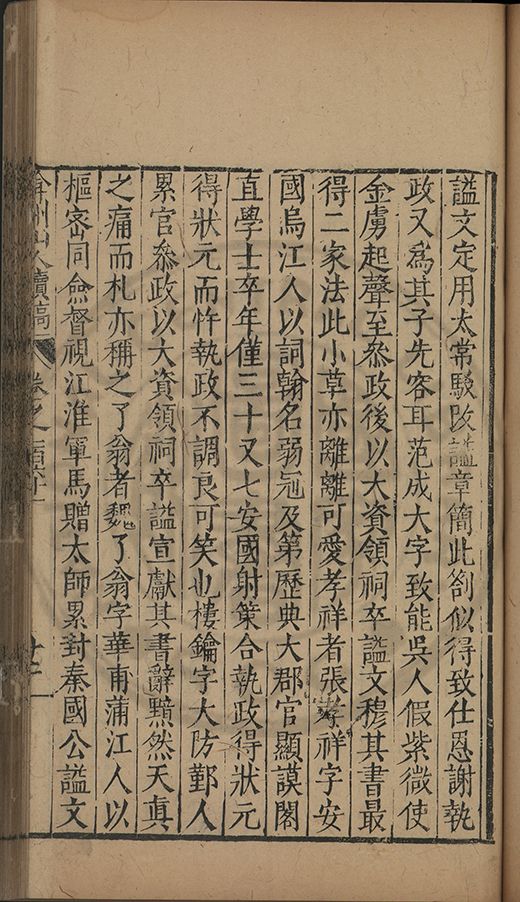 謚文定用太常駁改謚章簡此劄似得致仕恩謝執
政又爲其子先容耳范成大字致能吳人假紫微使
金虜起聲至叅政後以大資領祠卒謚文穆其書最
得二家法此小草亦離離可愛孝祥者張孝祥字安
國烏江人以詞翰名弱冠及第歷典大郡官顯謨閣
直學士卒年僅三十又七安國射策合執政得狀元
得狀元而忤執政不調良可笑也樓鑰字大防鄞人
累官叅政以大資領祠卒謚宣獻其書辭黯然天真
之痛而札亦稱之了翁者魏了翁字華甫蒲江人以
樞宻同僉督視江淮軍馬贈太師累封秦國公謚文
弇州山人續稿 卷之一百六十一